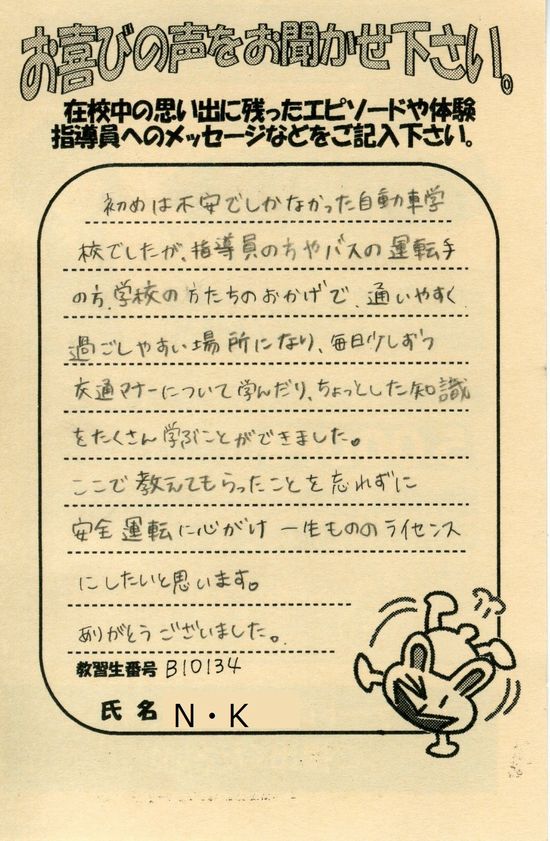 お喜びの声をお聞かせ下さい。
在校中の思い出に残ったエピソードや体験
指導員へのメッセージなどをご記入下さい。
初めは不安でしかなかった自動車学
校でしたが、指導員の方やバスの運転手
の方、学校の方たちのおかげで、通いやすく
過ごしやすい場所になり、毎日少しずつ
交通マナーについて学んだり、ちょっとした知識
をたくさん学ぶことができました。
ここで教えてもらったことを忘れずに
安全運転に心がけ一生もののライセンス
にしたいと思います。
ありがとうございました。
教習生番号 B10134
氏名 N・K